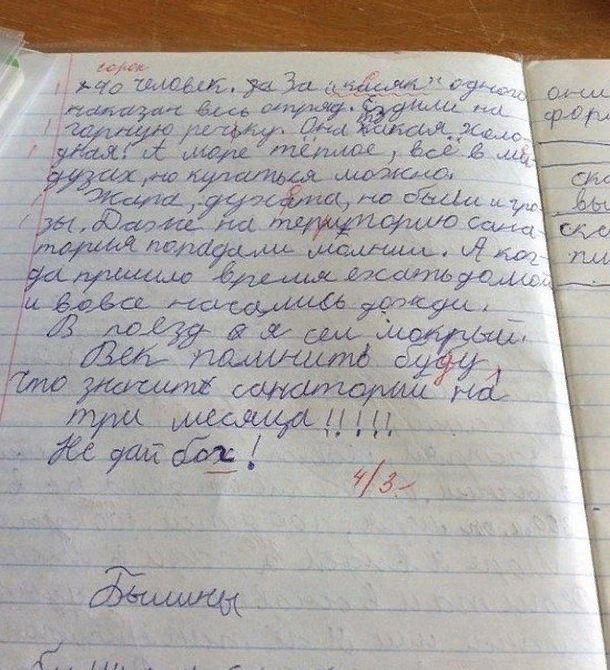 сорок
40 человек. За "косяк" одного
наказан весь отряд. Ездили на
горную речку. Она такая холо-
дная! А море тёплое, всё в ме-
дузах, но купаться можно.
Жара, духота, но были и гро-
зы. Даже на територию сана-
тория попадали молнии. А ког-
да пришло время ехать домой
и вовсе начались дожди.
В поезд я сел мокрый.
Век помнить буду,
что значит санаторий на
три месяца!!!!!
Не дай бох!
4/3-
Былины
они
фор
ска
вы
ска
пи